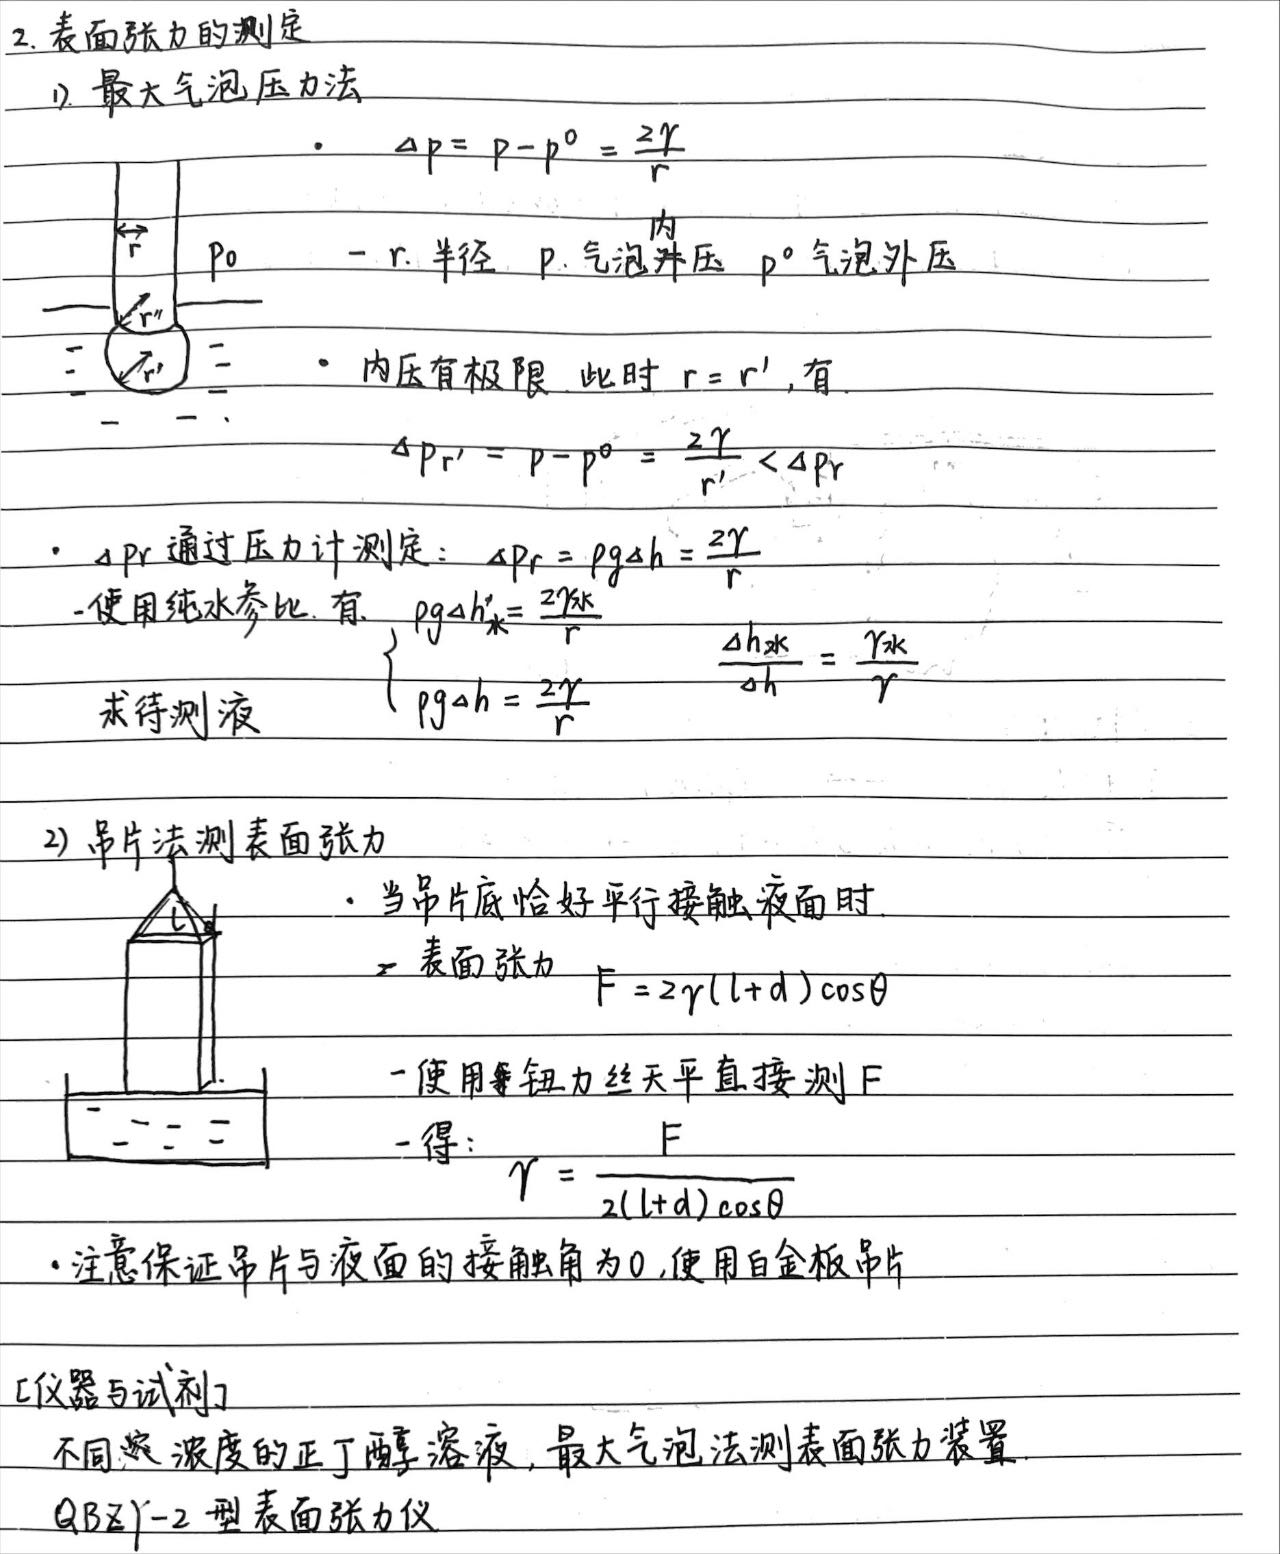 2. 表面张力的测定
1). 最大气泡压力法
· Δp = p - p⁰ = 2γ/r
r
p₀
r''
r'
- r. 半径 p. 气泡内压 p⁰ 气泡外压
· 内压有极限 此时 r = r', 有.
Δpr' = p - p⁰ = 2γ/r' < Δpr
· Δpr 通过压力计测定: Δpr = ρgΔh = 2γ/r
- 使用纯水参比. 有. ρgΔh水 = 2γ水/r
Δh水/Δh = γ水/γ
求待测液 ρgΔh = 2γ/r
2) 吊片法测表面张力
l d
· 当吊片底恰好平行接触液面时.
- 表面张力 F = 2γ(l+d)cosθ
- 使用钮力丝天平直接测 F
- 得: γ = F/2(l+d)cosθ
· 注意保证吊片与液面的接触角为0, 使用白金板吊片
[仪器与试剂]
不同浓度的正丁醇溶液, 最大气泡法测表面张力装置.
QBZY-2 型表面张力仪